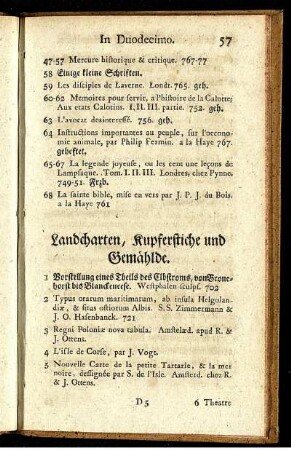 In Duodecimo. 57
47-57 Mercure historique & critique. 767-77
58 Einige kleine Schriften.
59 Les disciples de Laverne. Londr. 765. geh.
60-62 Memoires pour servir, a l'histoire de la Calotte;
Aux etats Calotins. I. II. III. partie. 752. geh.
63 L'avocat desinteressé. 756. geh.
64 Instructions importantes au peuple, sur l'oeconomie
animale, par Philip Fermin. a la Haye 767.
geheftet.
65-67 La legende joyeuse, ou les cent une leçons de
Lampsaque. Tom. I. II. III. Londres, chez Pynne.
749-51. Frzb.
68 La sainte bible, mise en vers par J. P. J. du Bois.
a la Haye 761
Landcharten, Kupferstiche und
Gemählde.
1 Vorstellung eines Theils des Elbstroms, von
horst bis Blanckenese. Westphalen sculps. 702
2 Typus orarum maritimarum, ab insula Helgolandiæ,
& situs ostiorum Albis. S. S. Zimmermann &
J. O. Hasenbanck. 721
3 Regni Poloniæ nova tabula. Amstelæd. apud R. &
J. Ottens.
4 L'isle de Corse, par J. Vogt.
5 Nouvelle Carte de la petite Tartarie, & la mer
noire, dessignée par S. de l'Isle. Amsterd. chez R.
& J. Ottens.
D 5 6 Theatre